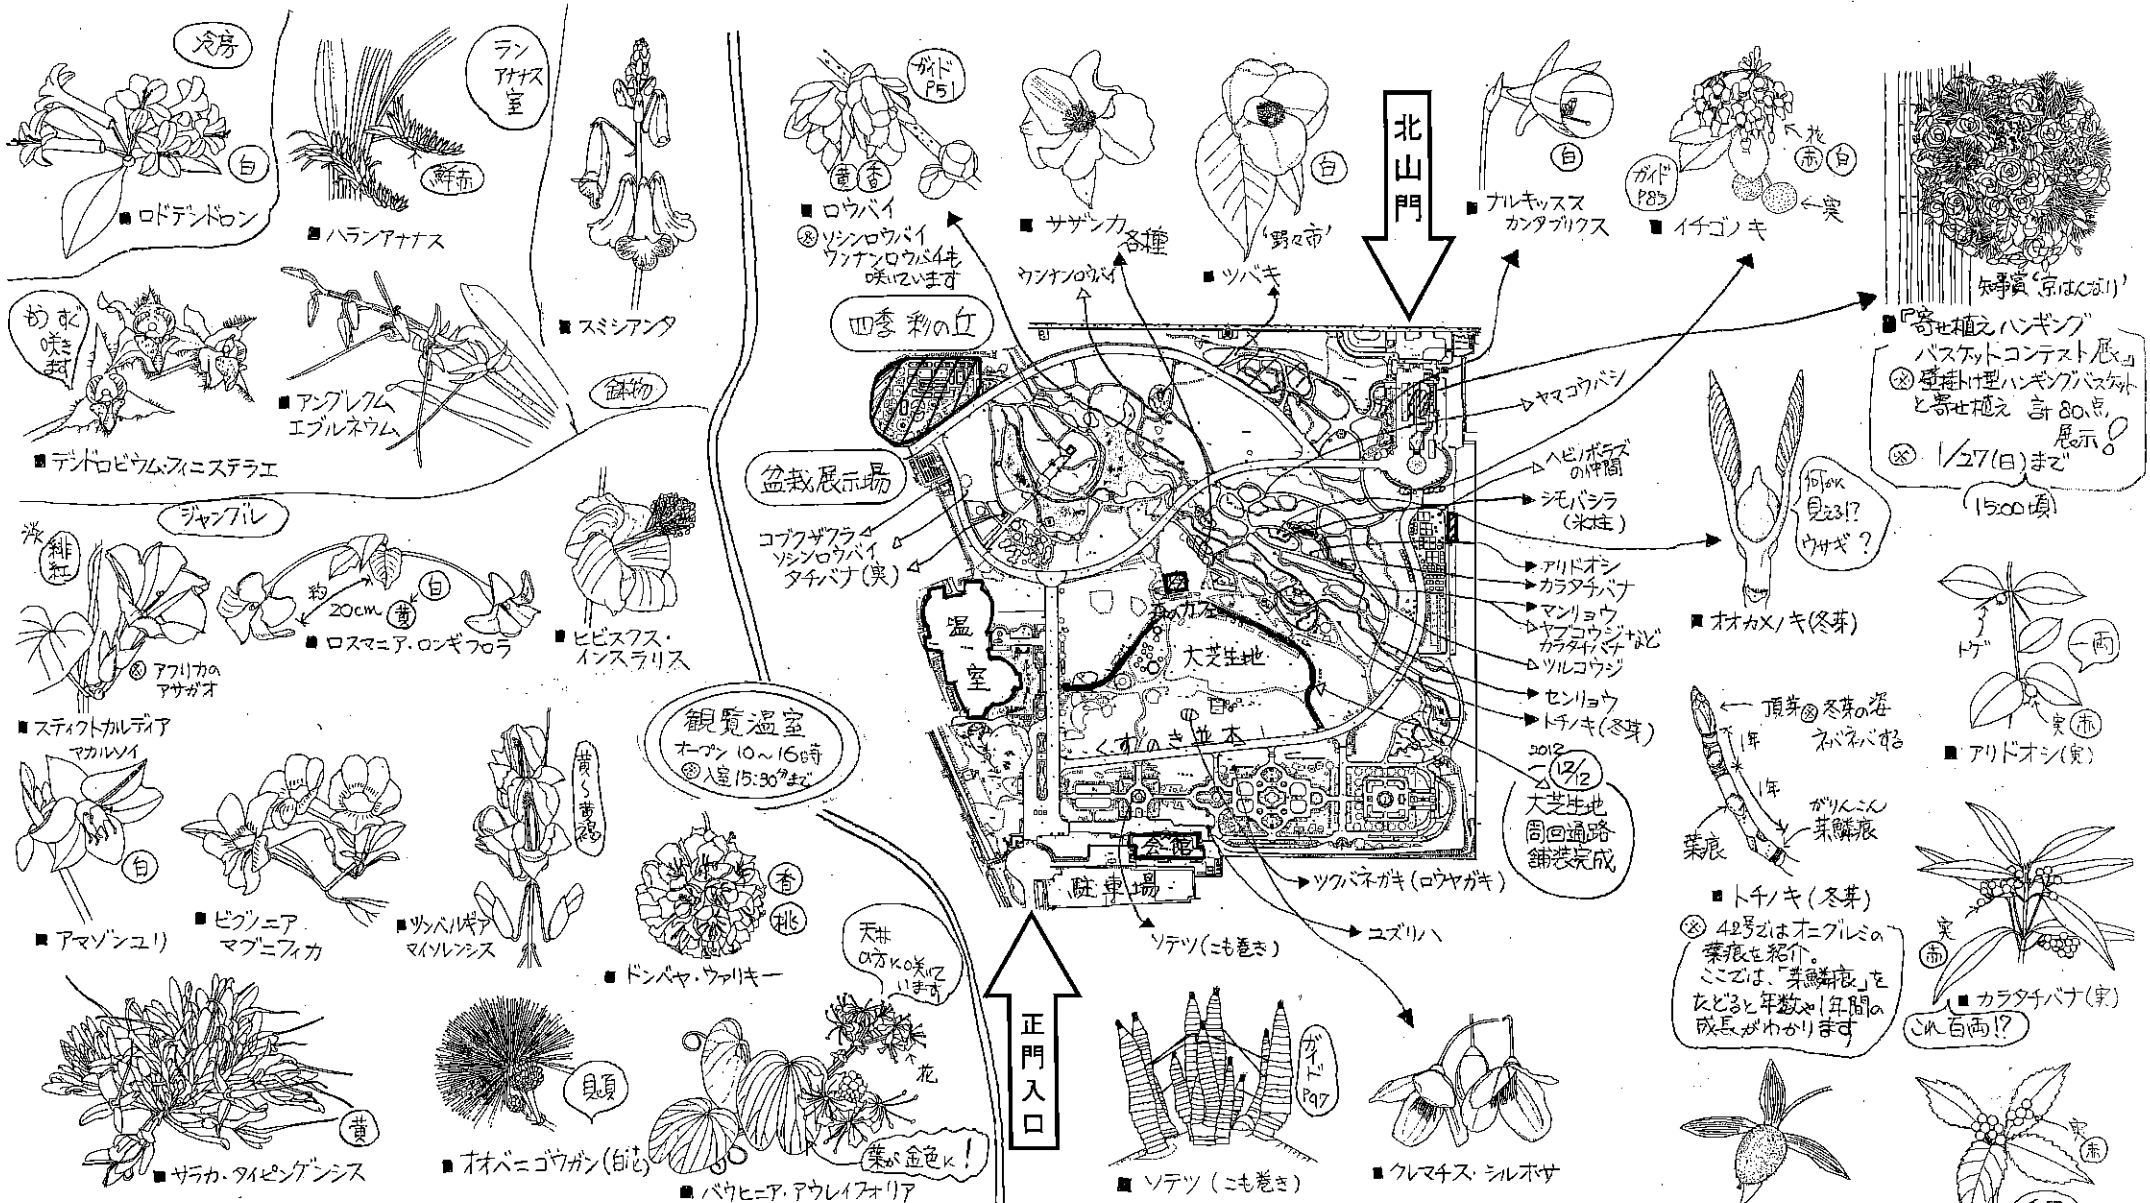 冷房
白
■ ロドデンドロン
ラン
アナナス
室
鮮赤
■ ハランアナナス
■ スミシアンタ
もうすぐ
咲き
ます
■ デンドロビウム・フィニステラエ
■ アングレクム
エブルネウム
鉢物
ジャングル
淡
緋
紅
※ アフリカの
アサガオ
■ スティクトカルディア
マカルソイ
約
20cm
黄
白
■ ロスマニア・ロンギフロラ
■ ヒビスクス・
インスラリス
白
■ アマゾンユリ
■ ビグノニア
マグニフィカ
黄〜黄褐
■ ツンベルギア
マイソレンシス
観覧温室
オープン 10〜16時
※入室 15:30分まで
香
桃
■ ドンベヤ・ウァリキー
黄
■ サラカ・タイピングンシス
■ オオベニゴウガン(白花)
天井
の方に咲いて
います
花
葉が金色に!
■ バウヒニア・アウレイフォリア
ガイド
P51
黄
香
■ ロウバイ
※ ソシンロウバイ
ウンナンロウバイも
咲いています
■ サザンカ
各種
ウンナンロウバイ
白
'野々市'
■ ツバキ
北山門
白
■ ナルキッスス
カンタブリクス
ガイド
P83
花
赤
白
実
■ イチゴノキ
知事賞 '京はんなり'
■『寄せ植えハンギング
バスケットコンテスト展』
※ 壁掛け型ハンギングバスケット
と寄せ植え 計80点
展示!
※ 1/27(日)まで
(15:00頃)
四季 彩の丘
盆栽展示場
コブクザクラ
ソシンロウバイ
タチバナ(実)
温
室
大芝生地
くすのき並木
会館
駐車場
正門入口
ヤマコウバシ
ヘビノボラズ
の仲間
シモバシラ
(氷柱)
アリドオシ
カラタチバナ
マンリョウ
ヤブコウジなど
カラタチバナ
ツルコウジ
センリョウ
トチノキ(冬芽)
2012
12/12
大芝生地
周回通路
舗装完成
ツクバネガキ(ロウヤガキ)
ソテツ(こも巻き)
ユズリハ
ガイド
P97
■ ソテツ(こも巻き)
■ クレマチス・シルホサ
何かに
見える!?
ウサギ?
■ オオカメノキ(冬芽)
トゲ
一両
実
赤
■ アリドオシ(実)
頂芽 ※ 冬芽の姿
ネバネバする
1年
1年
がりんこん
芽鱗痕
葉痕
■ トチノキ(冬芽)
※ 42号ではオニグルミの
葉痕を紹介。
ここでは、「芽鱗痕」を
たどると年数や1年間の
成長がわかります
実
赤
■ カラタチバナ(実)
これ百両!?
実
赤